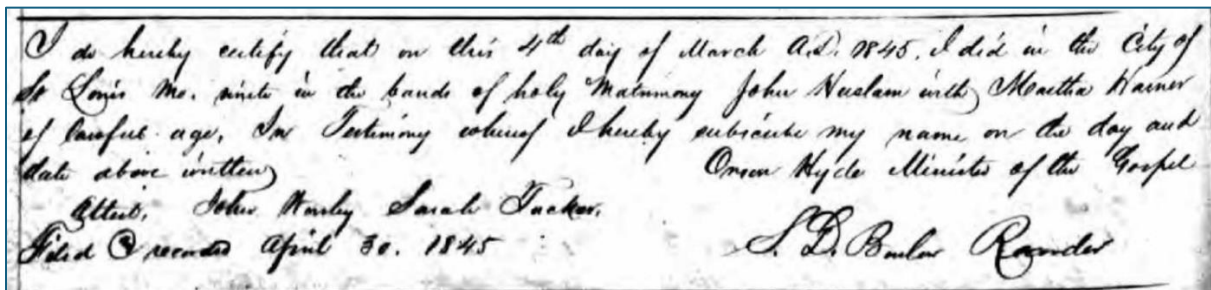 I do hereby certify that on this 4th day of March A.D. 1845. I did in the City of
St Louis Mo. unite in the bands of holy Matrimony John Haslam with Martha Harner
of lawful age, In Testimony whereof I hereby subscribe my name on the day and
date above written Orson Hyde Minister of the Gospel
Attest, John Worsley Sarah Tucker.
Filed & recorded April 30. 1845 S. D. Barlow Recorder